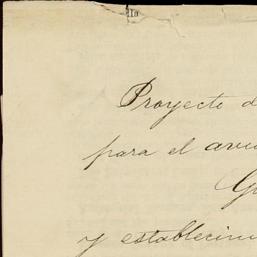 Proyecto d
para el avu
y establecim